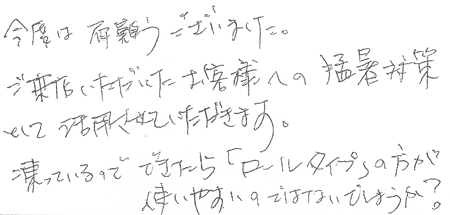 今度は有難うございました。
ご来店いただいたお客様への猛暑対策
として活用させていただきます。
凍っているので できたら「ロールタイプ」の方が
使いやすいのではないでしょうか?